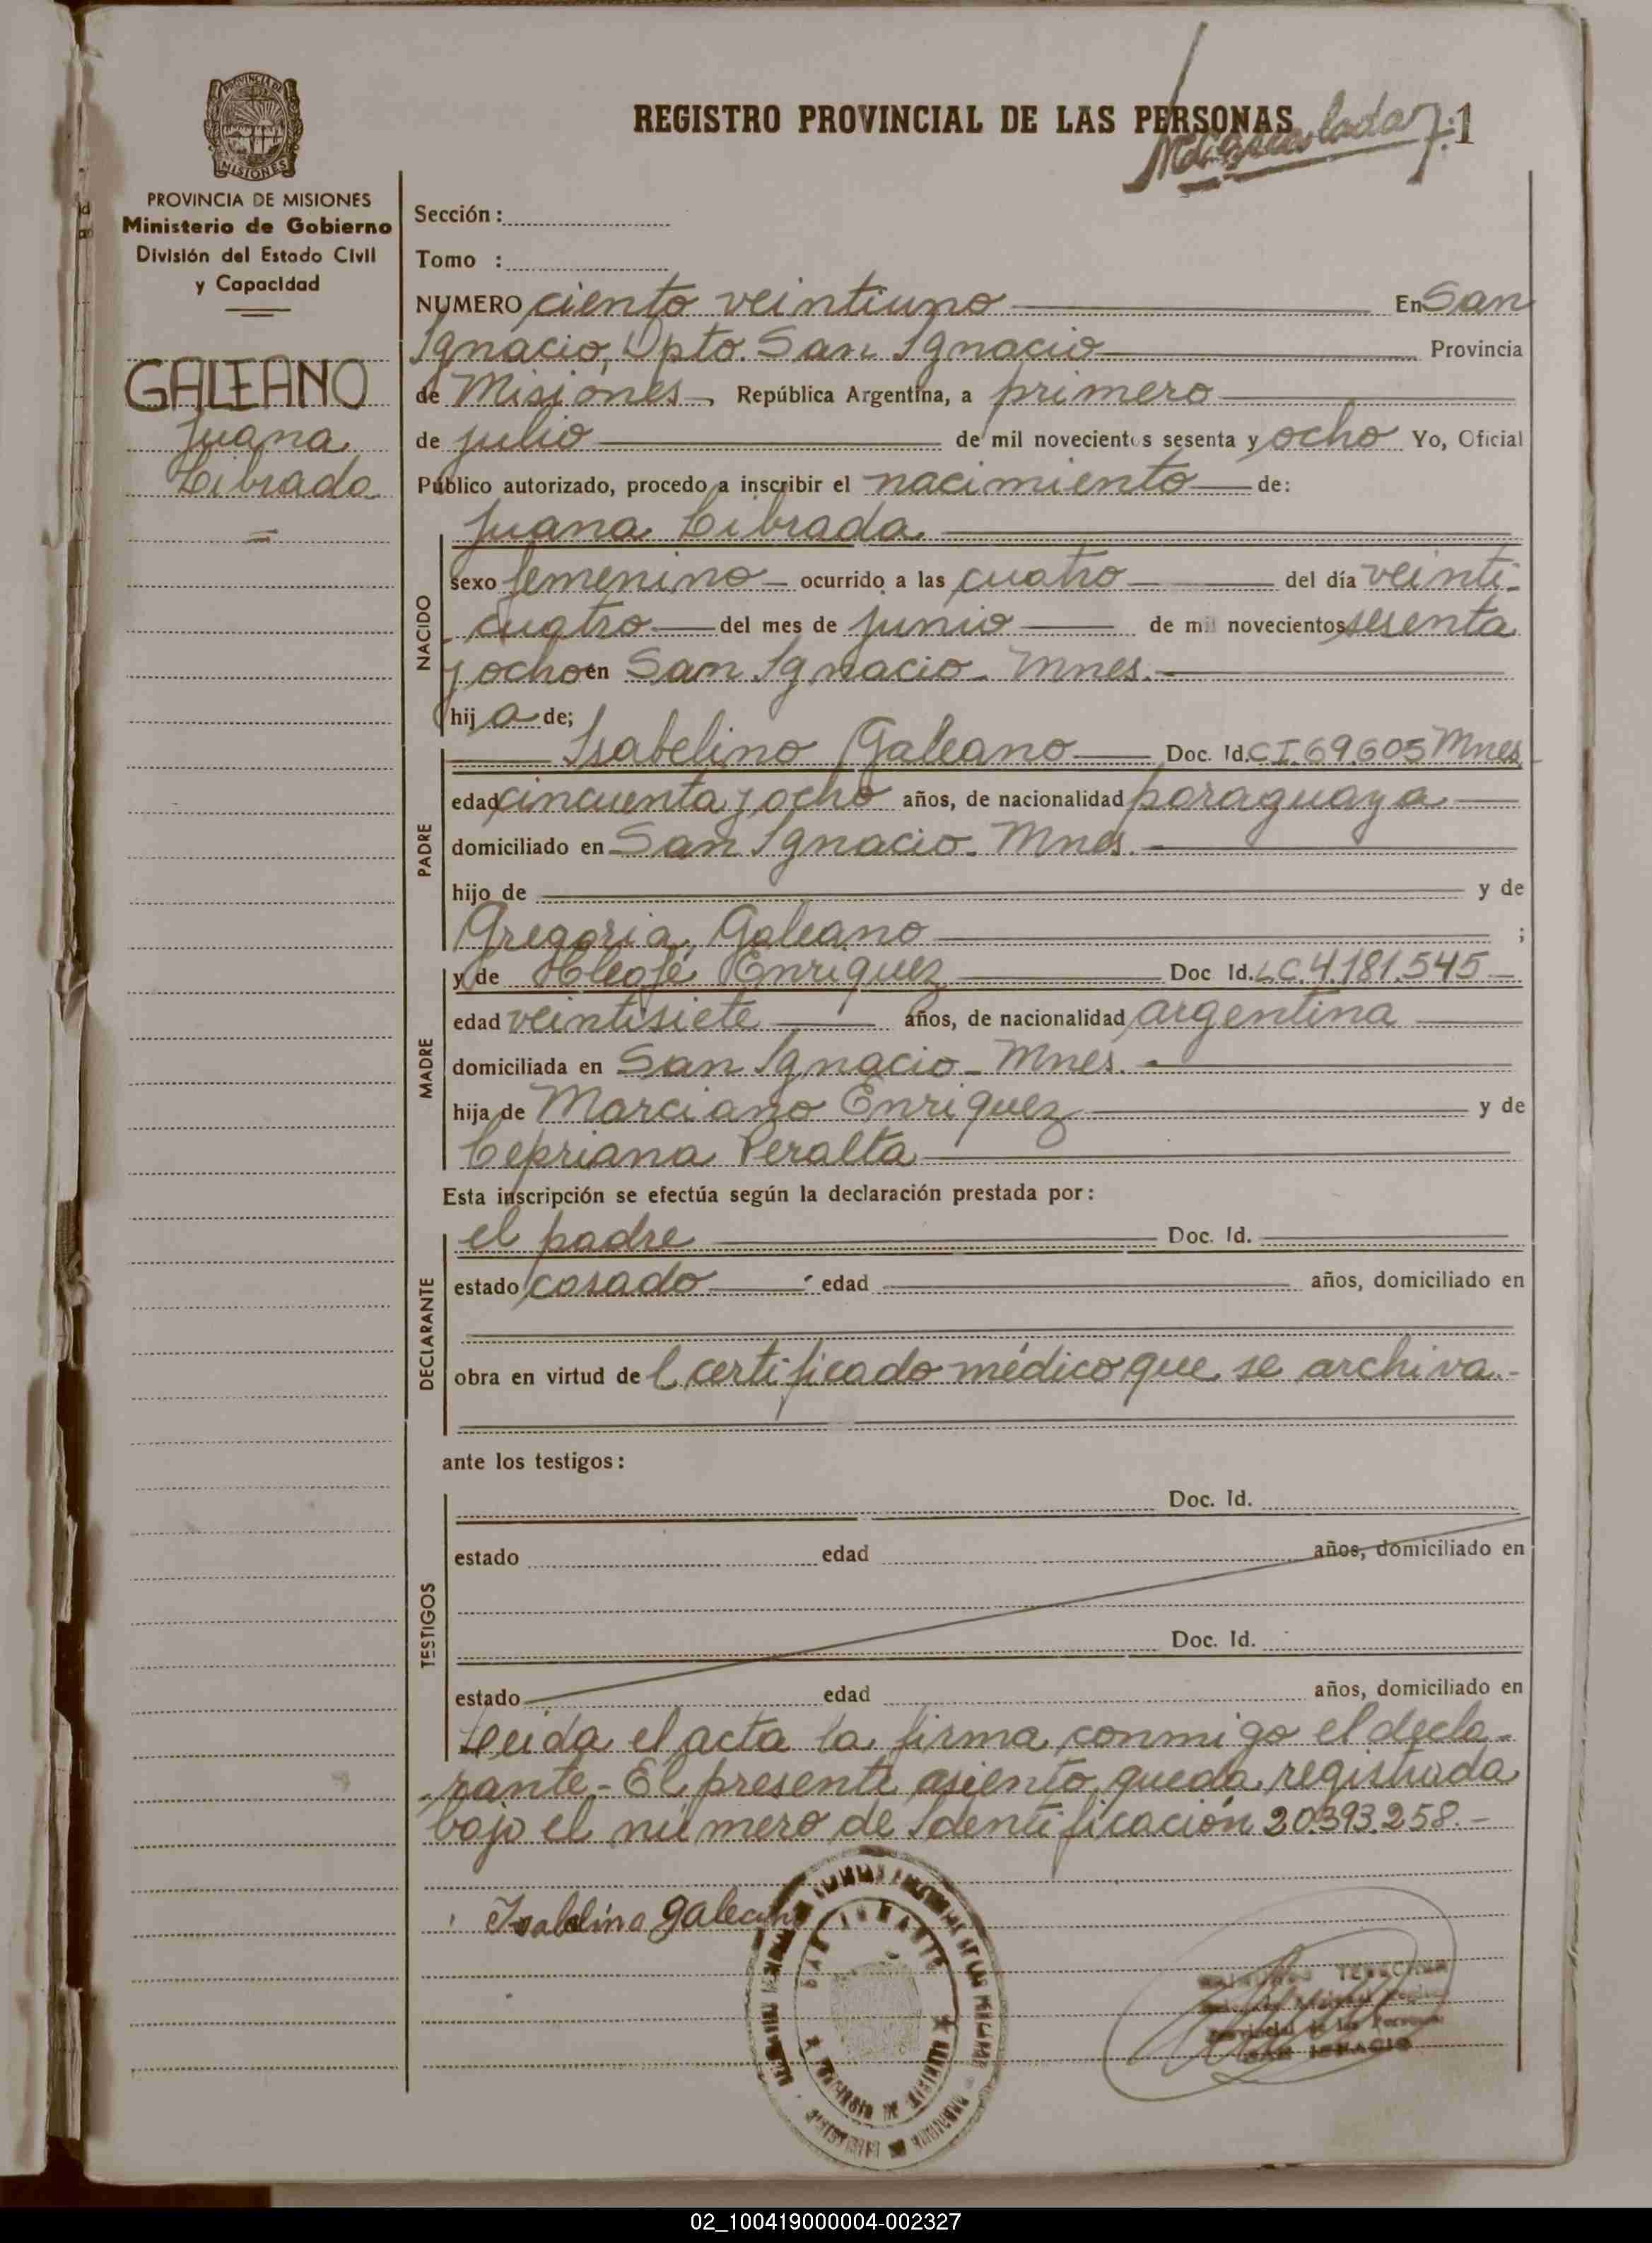 REGISTRO PROVINCIAL DE LAS PERSONAS
71
PROVINCIA DE MISIONES
MISIONES
PROVINCIA DE MISIONES
Ministerio de Gobierno
División del Estado Civil
y Capacidad
GALEANO
Juana
Librada
Sección:
Tomo :
NUMERO ciento veintiuno En San
Ignacio, Dpto. San Ignacio Provincia
de Misiones, República Argentina, a primero
de julio de mil novecientos sesenta y ocho Yo, Oficial
Público autorizado, procedo a inscribir el nacimiento de:
Juana Librada
NACIDO
sexo femenino ocurrido a las cuatro del día veinti-
cuatro del mes de junio de mil novecientos sesenta
y ocho en San Ignacio - Mnes.
hija de;
PADRE
Isabelino Galeano Doc. Id. C.I. 69.605 Mnes
edad cincuenta y ocho años, de nacionalidad paraguaya
domiciliado en San Ignacio - Mnes.
hijo de y de
Gregoria Galeano ;
MADRE
y de Enriquez Doc Id. L.C. 4.181.545
edad veintisiete años, de nacionalidad argentina
domiciliada en San Ignacio - Mnes.
hija de Marciano Enriquez y de
Cepriana Peralta
Esta inscripción se efectúa según la declaración prestada por:
DECLARANTE
el padre Doc. Id.
estado casado edad años, domiciliado en
obra en virtud del certificado médico que se archiva.-
ante los testigos:
TESTIGOS
Doc. Id.
estado edad años, domiciliado en
Doc. Id.
estado edad años, domiciliado en
Leida el acta la firma conmigo el decla-
rante.- El presente asiento queda registrada
bajo el número de Identificación 20.393.258.-
Isabelino galeano
SAN IGNACIO
Provincial de las Personas
SAN IGNACIO
02_100419000004-002327